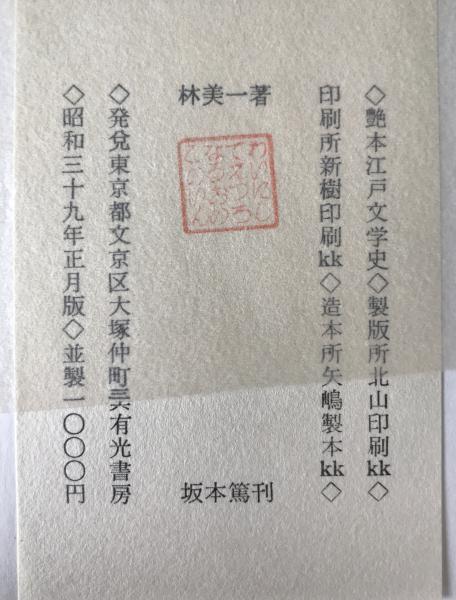 ◇艶本江戸文学史◇製版所北山印刷kk◇
印刷所新樹印刷kk◇造本所矢嶋製本kk◇
林美一著
坂本篤刊
◇発兌東京都文京区大塚仲町三六有光書房
◇昭和三十九年正月版◇並製一〇〇〇円